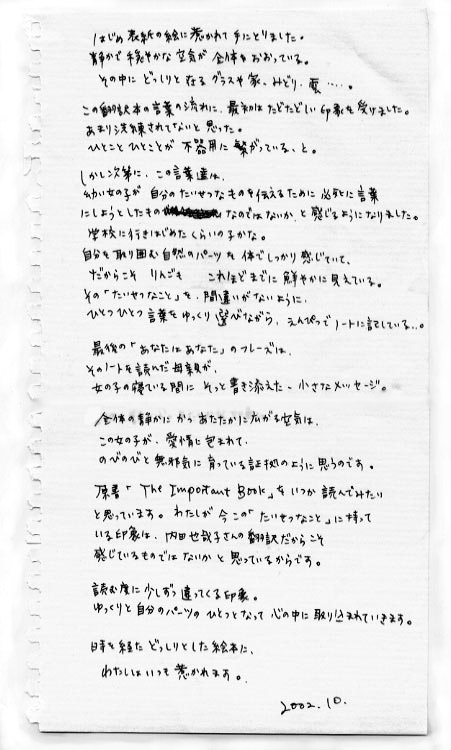 はじめ表紙の絵に惹かれて手にとりました。
静かで穏やかな空気が全体をおおっている。
その中にどっしりと在るグラスや家、みどり、雲‥‥。
この翻訳本の言葉の流れに、最初はたどたどしい印象を受けました。
あまり洗練されてないと思った。
ひとことひとことが不器用に繋がっている、と。
しかし次第に、この言葉達は、
幼い女の子が自分のたいせつなものを伝えるために必死に言葉
にしようとしたものなのではないか、と感じるようになりました。
学校に行きはじめたくらいの子かな。
自分を取り囲む自然のパーツを体でしっかり感じていて、
だからこそりんごもこれほどまでに鮮やかに見えている。
その「たいせつなこと」を、間違いがないように、
ひとつひとつ言葉をゆっくり選びながら、えんぴつでノートに記している‥。
最後の「あなたはあなた」のフレーズは、
そのノートを読んだ母親が、
女の子の寝ている間にそっと書き添えた、小さなメッセージ。
全体の静かにかつあたたかに広がる空気は、
この女の子が、愛情に包まれて、
のびのびと無邪気に育っている証拠のように思うのです。
原書「The Important Book」をいつか読んでみたい
と思っています。わたしが今この「たいせつなこと」に持って
いる印象は、内田也哉子さんの翻訳だからこそ
感じているものではないかと思っているからです。
読む度に少しずつ違ってくる印象。
ゆっくりと自分のパーツのひとつとなって心の中に取り込まれていきます。
時を経たどっしりとした絵本に、
わたしはいつも惹かれます。
2002.10.